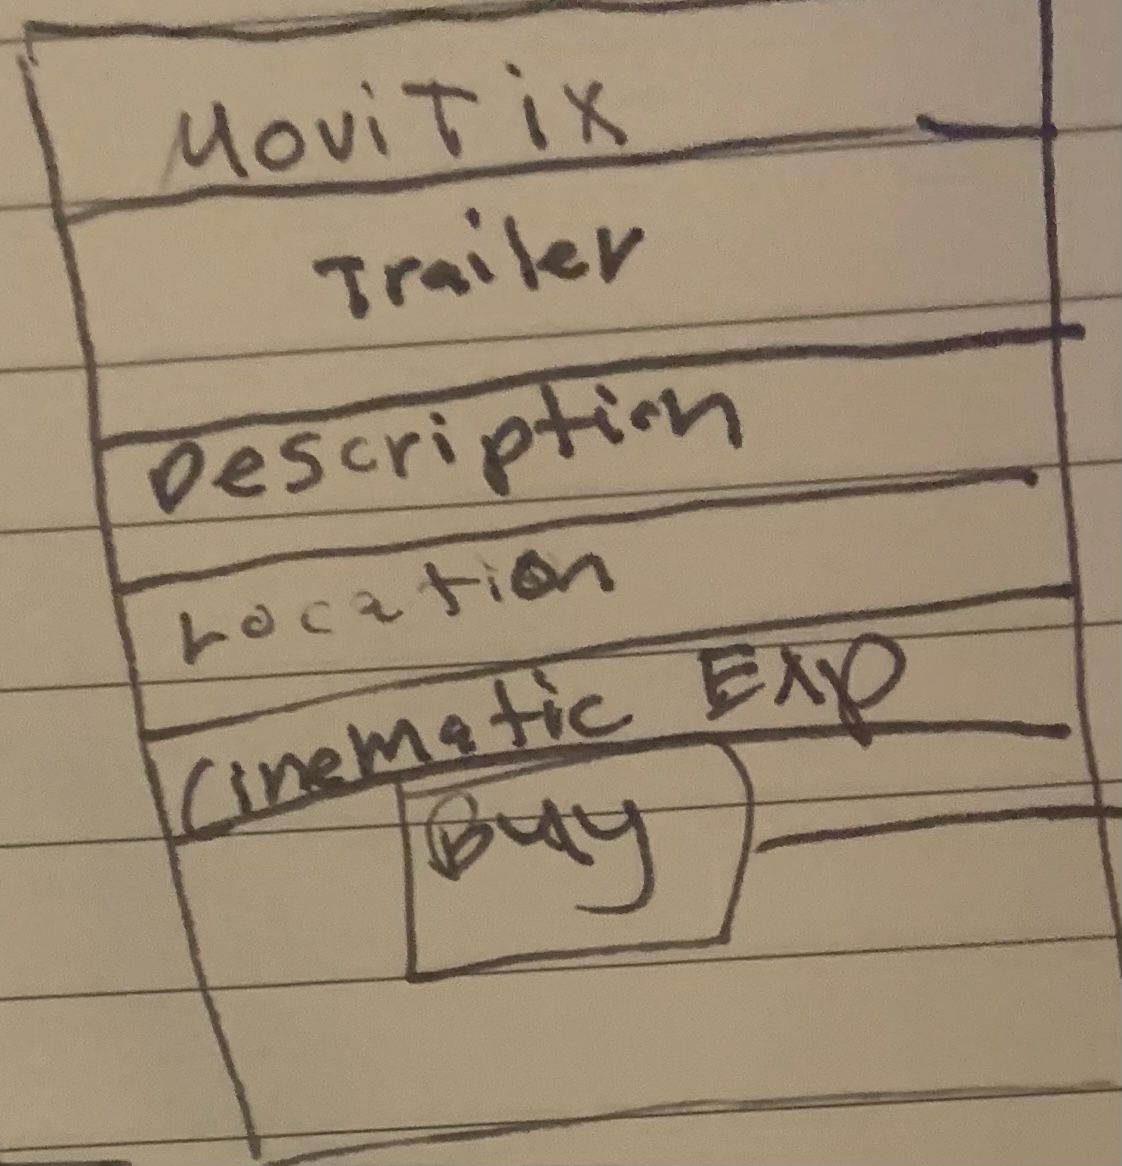 MoviTix
Trailer
Description
Location
Cinematic Exp
Buy